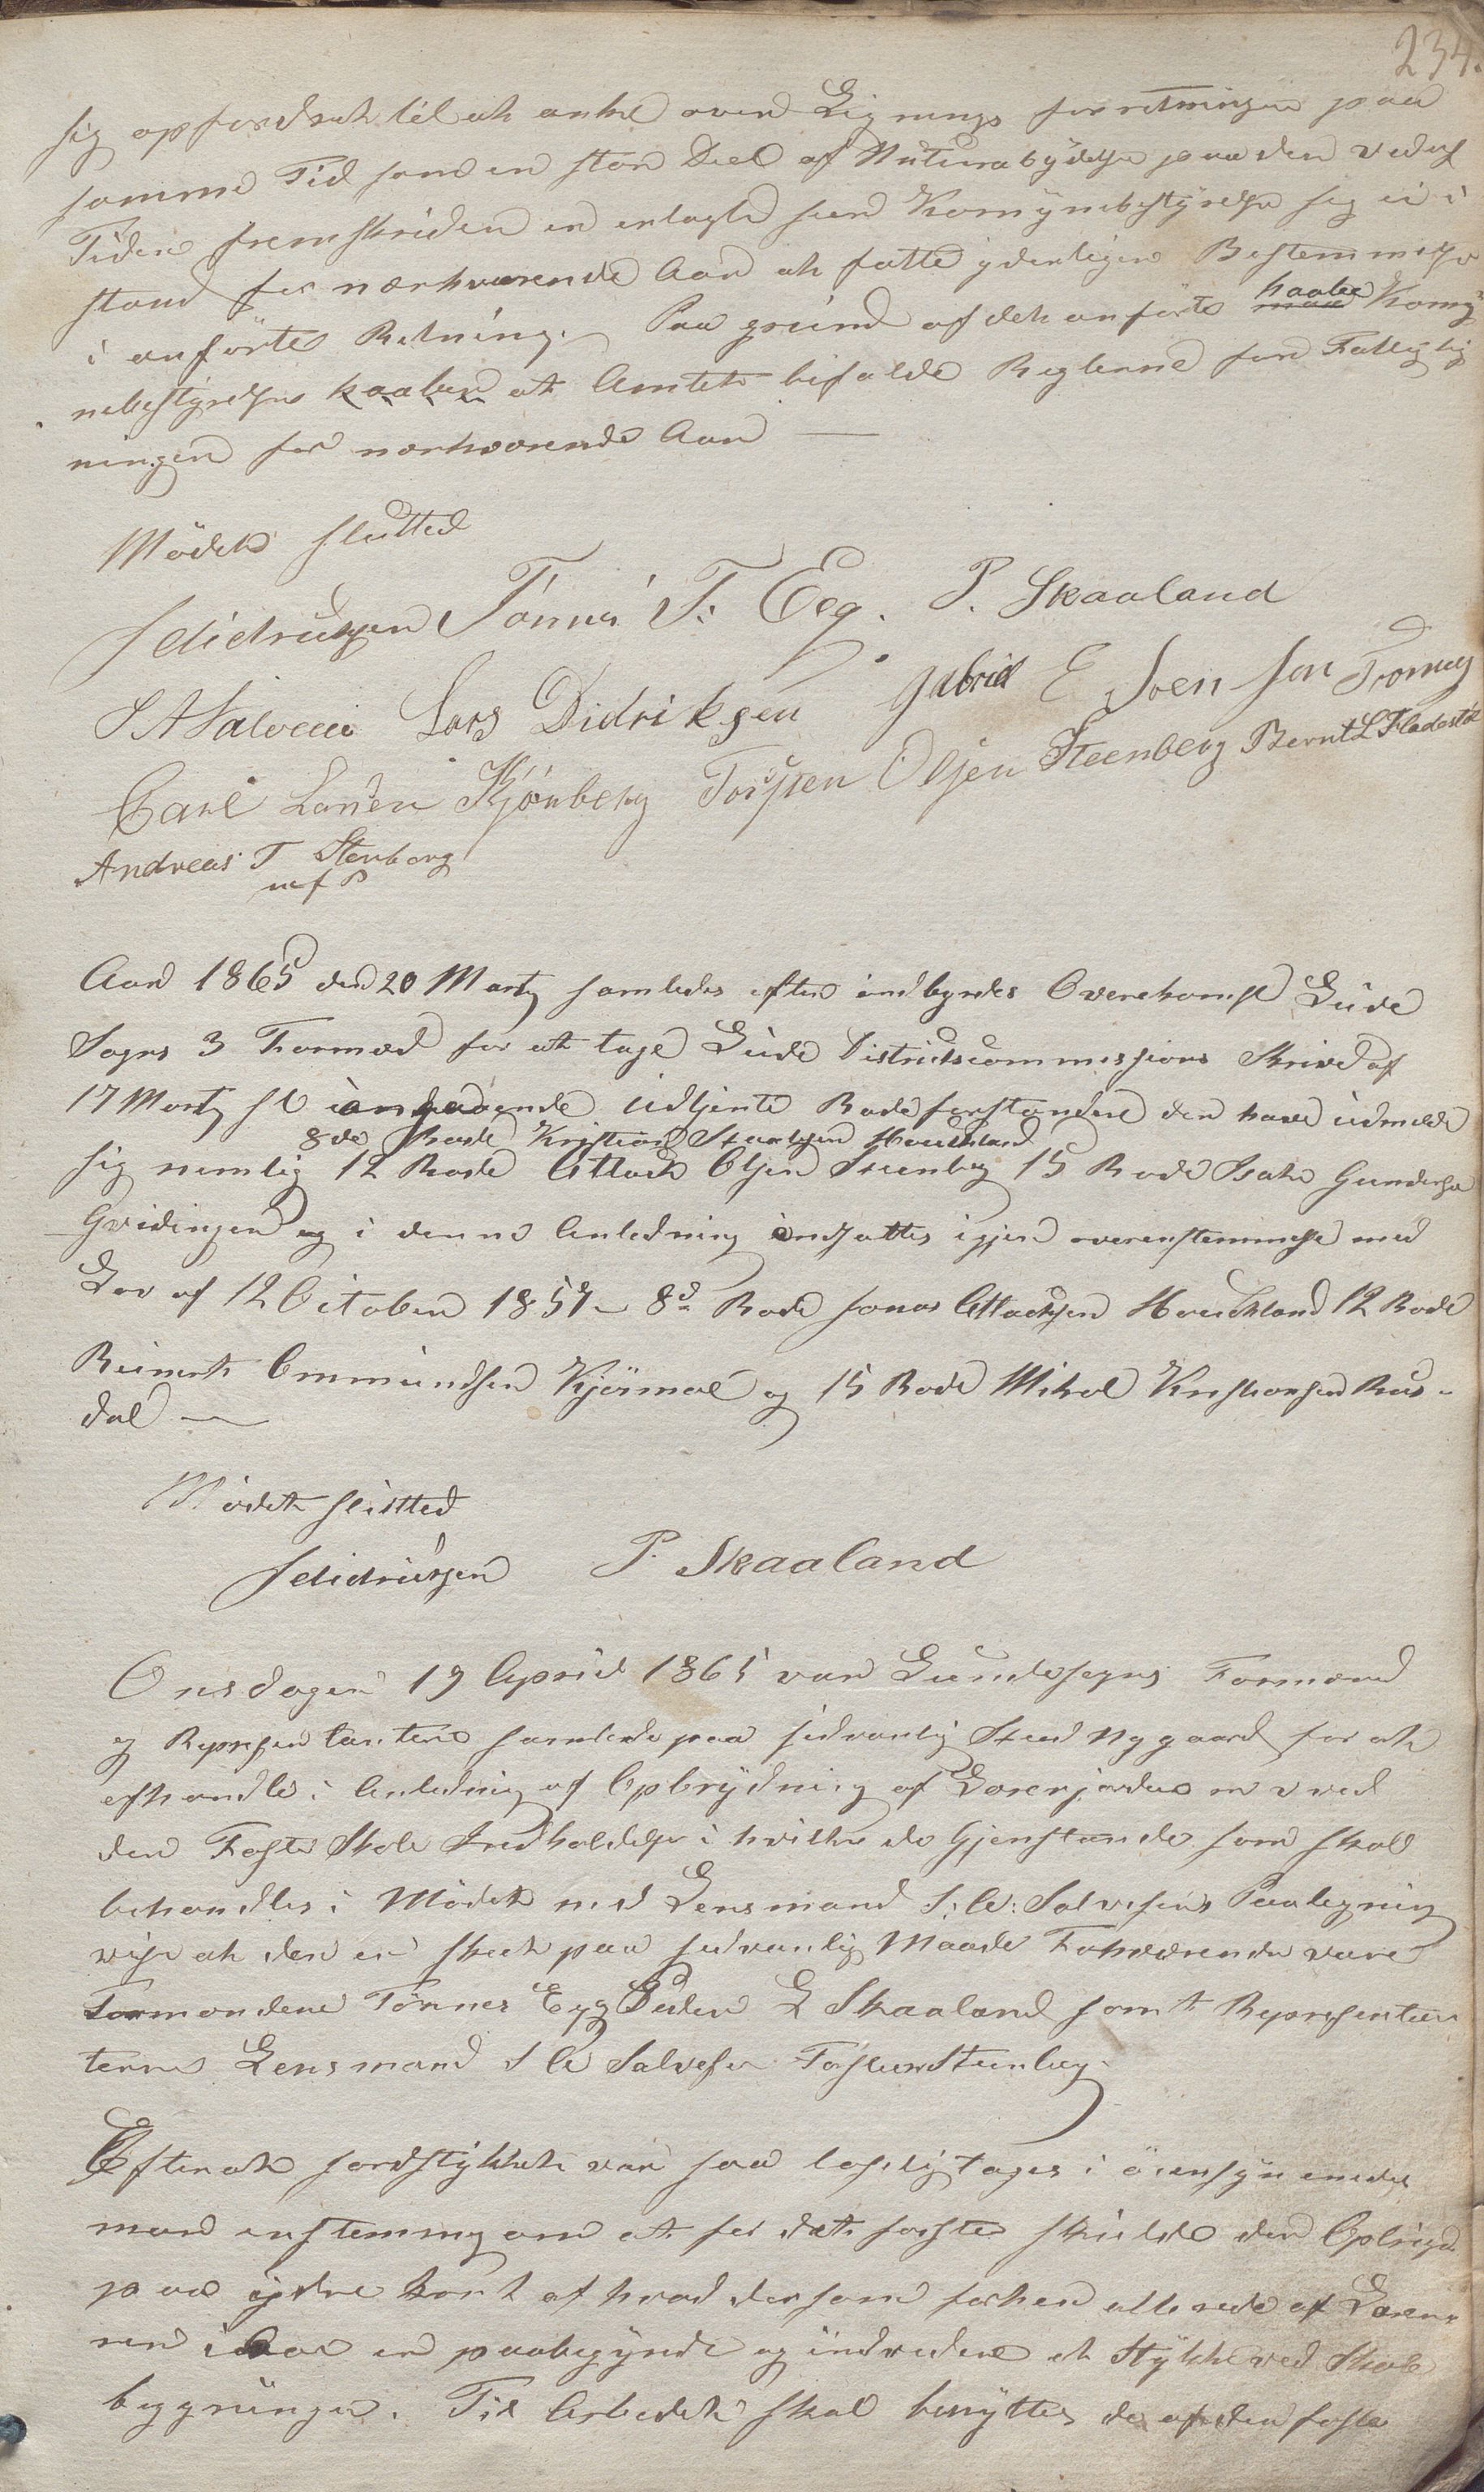 234.
sig opfordret til at anke over Lignings forretningen paa
samme Tid som en stor Deel af Naturalydelse paa den ved af
Tiden fremskriden er erlagte seer Komynebestyrelse sig ei i
stand for nærhværende Aar at fatte yderligere Bestemmelse
i anførte Retning. Paa grund af det anførte haaber Komy
nebestyrelsen haaber at Amtet bifalde Reglerne for Fattiglig
ningen for nærhværende Aar —
Mödet sluttet
Tönnes T. Eeg. P. Skaaland
S A Salvesen Lars Didriksen Gabriel E Svensson Tromeg
Carl Larsen Kjönberg Torssen Olsen Steenberg Bernt L Fladestöl
Andreas T Stenberg
m f P
Aar 1865 den 20 Marty samledes efter indbyrdes Overenkomst Lunde
Sogns 3 Formæd for at tage Lunde Districtscommissions Skrive af
17 Marty sl angaaende udtjente Rodeforstandere der have udmeldt
8de Rode Kristian Haukland
sig nemlig 12 Rode Attlack Olsen Steenberg 15 Rode Isak Gundersen
Gridingen og i denne Anledning indsattes igjen overenstemmelse med
Lov af 12 October 1857 – 8d Rode Jonas Attlacksen Haukland 12 Rode
Reinert Ommundsen Kjörmoe og 15 Rode Mikel Kristiansen Rus-
dal —
Mödet sluttet
P. Skaaland
Onsdagen 19 April 1865 var Lundesogns Formænd
og Representantere samlede paa sædvanlig Sted Nygaard for at
afhandle i Anledning af Opbrydning af Lærerjorden m v ved
den Faste Skole Indholdelse i hvilke de Gjenstande som skal
behandles i Mödet med Lensmand S: A: Salvesens Paategning
vise at den er skeet paa sædvanlig Maade Tohværende vare
Formændene Tönnes Egg Peder L Skaaland samt Representan
terne Lensmand S A Salvesen Torsten Steenberg.
Efterat Jordstykket var saa tages i öiensyn enedes
man enstemmig om at for det förste skulde der Opbryde
paa ydre kant af hvad der som forhen allerede af Lærer-
ren i Aar er paabegyndt og indvedere et Stykke ved Skole
bygningen. Til Arbedet skal benyttes de af den faste